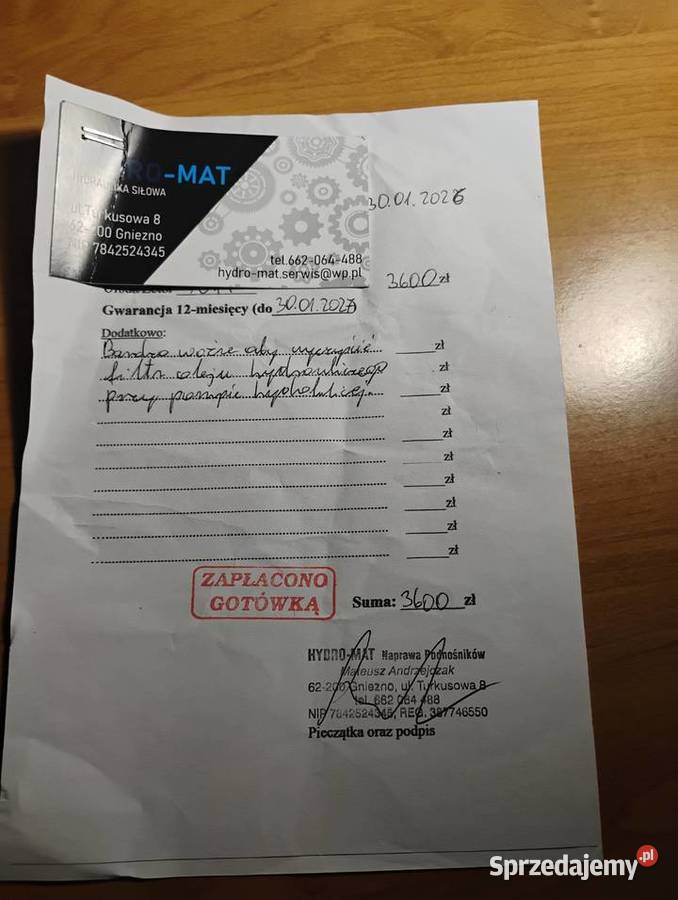 RO-MAT
HYDRAULIKA SIŁOWA
ul.Turkusowa 8
62-200 Gniezno
NIP 7842524345
tel.662-064-488
hydro-mat.serwis@wp.pl
30.01.2026
3600 zł
Gwarancja 12-miesięcy (do 30.01.2027)
Dodatkowo:
Bardzo ważne aby wyczyścić zł
filtr oleju hydraulicznego zł
przy pompie hydraulicznej. zł
zł
zł
zł
zł
zł
zł
zł
ZAPŁACONO
GOTÓWKĄ
Suma: 3600 zł
HYDRO-MAT Naprawa Podnośników
Mateusz Andrzejczak
62-200 Gniezno, ul. Turkusowa 8
tel. 662 064 488
NIP 7842524345, REG. 387746550
Pieczątka oraz podpis
Sprzedajemy.pl